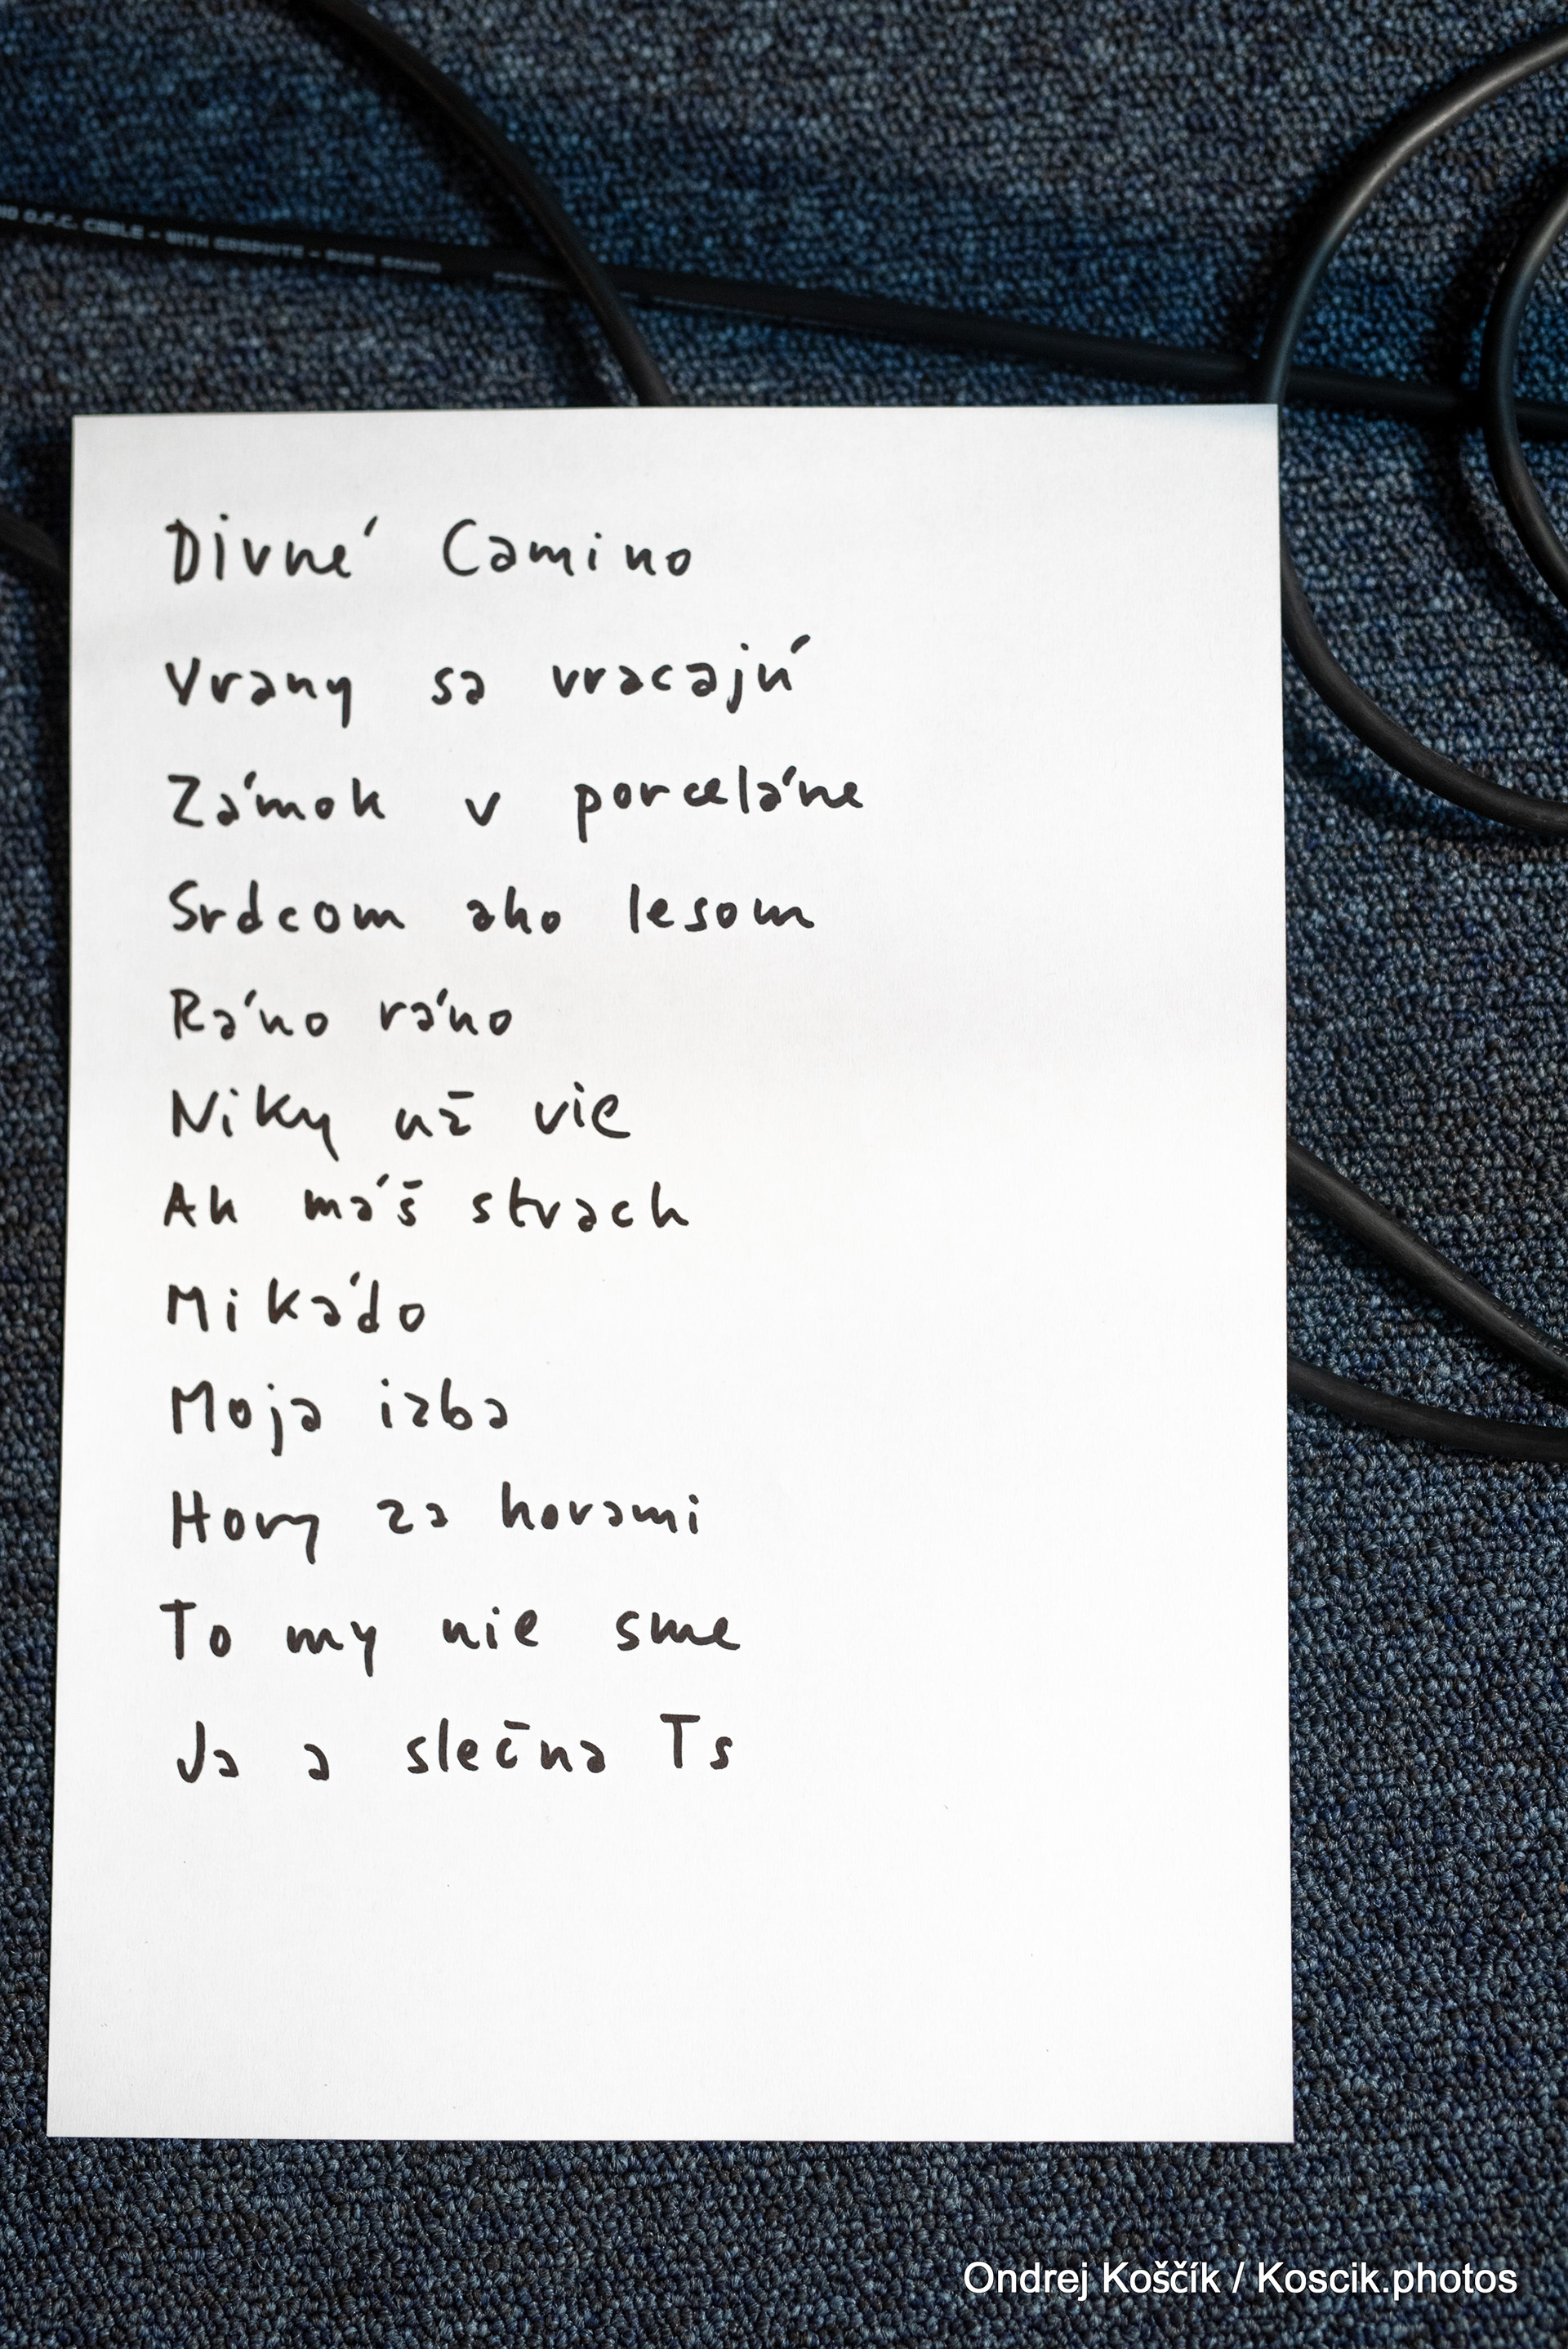 O.F.C. CABLE - WITH GRAPHITE -
Divné Camino
Vrany sa vracajú
Zámok v porceláne
Srdcom ako lesom
Ráno ráno
Niky už vie
Ak máš strach
Mikádo
Moja izba
Hory za horami
To my nie sme
Ja a slečna Ts
Ondrej Koščík / Koscik.photos